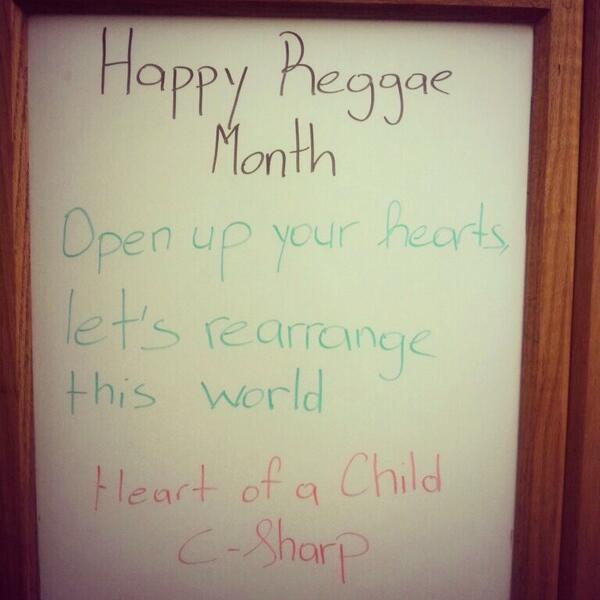 Happy Reggae
Month
Open up your hearts,
let's rearrange
this world
Heart of a Child
C-Sharp